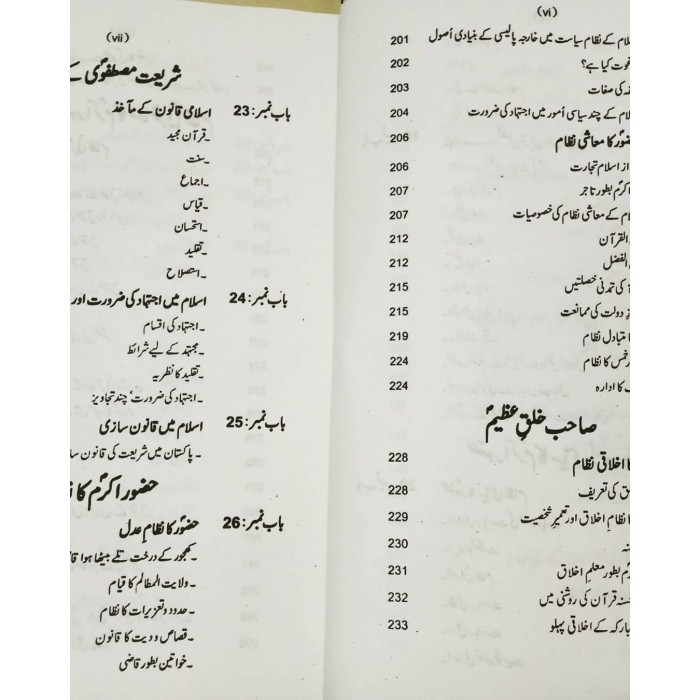 (vi)
سلام کے نظام سیاست میں خارجہ پالیسی کے بنیادی اُصول 201
خوت کیا ہے؟ 202
کی صفات 203
سلام کے چند سیاسی اُمور میں اجتہاد کی ضرورت 204
حضورؐ کا معاشی نظام 206
از اسلام تجارت 206
اکرمؐ بطور تاجر 207
سلام کے معاشی نظام کی خصوصیات 207
القرآن 212
الفضل 212
کی تمدنی خصلتیں 215
دولت کی ممانعت 215
متبادل نظام 219
خمس کا نظام 224
کا ادارہ 224
صاحب خلق عظیمؐ
کا اخلاقی نظام 228
ق کی تعریف 228
کا نظام اخلاق اور تعمیر شخصیت 229
230
بطور معلم اخلاق 231
حسنہ قرآن کی روشنی میں 232
مبارکہ کے اخلاقی پہلو 233
(vii)
شریعت مصطفویؐ کے
باب نمبر: 23 اسلامی قانون کے مآخذ
۔قرآن مجید
۔سنت
۔اجماع
۔قیاس
۔استحسان
۔تقلید
۔استصلاح
باب نمبر: 24 اسلام میں اجتہاد کی ضرورت اور
۔اجتہاد کی اقسام
۔مجتہد کے لیے شرائط
۔تقلید کا نظریہ
۔اجتہاد کی ضرورت، چند تجاویز
باب نمبر: 25 اسلام میں قانون سازی
۔پاکستان میں شریعت کی قانون ساز
حضور اکرمؐ کا
باب نمبر: 26 حضورؐ کا نظام عدل
۔کھجور کے درخت تلے بیٹھا ہوا
۔ولایت المظالم کا قیام
۔حدود و تعزیرات کا نظام
۔قصاص و دیت کا قانون
۔خواتین بطور قاضی